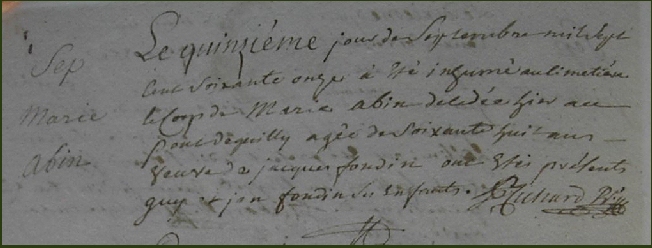 Sep
Marie
abin
Le quinziéme jour de Septembre mil Sept
Cent Soixante onze à été inhumé au Cimetiére
le Corp de Marie abin decedée hier au
pont dequilly agée de Soixante huit ans
veuve de jacques fondin ont étés présents
guy et jean fondin Ses Enfants. Richard